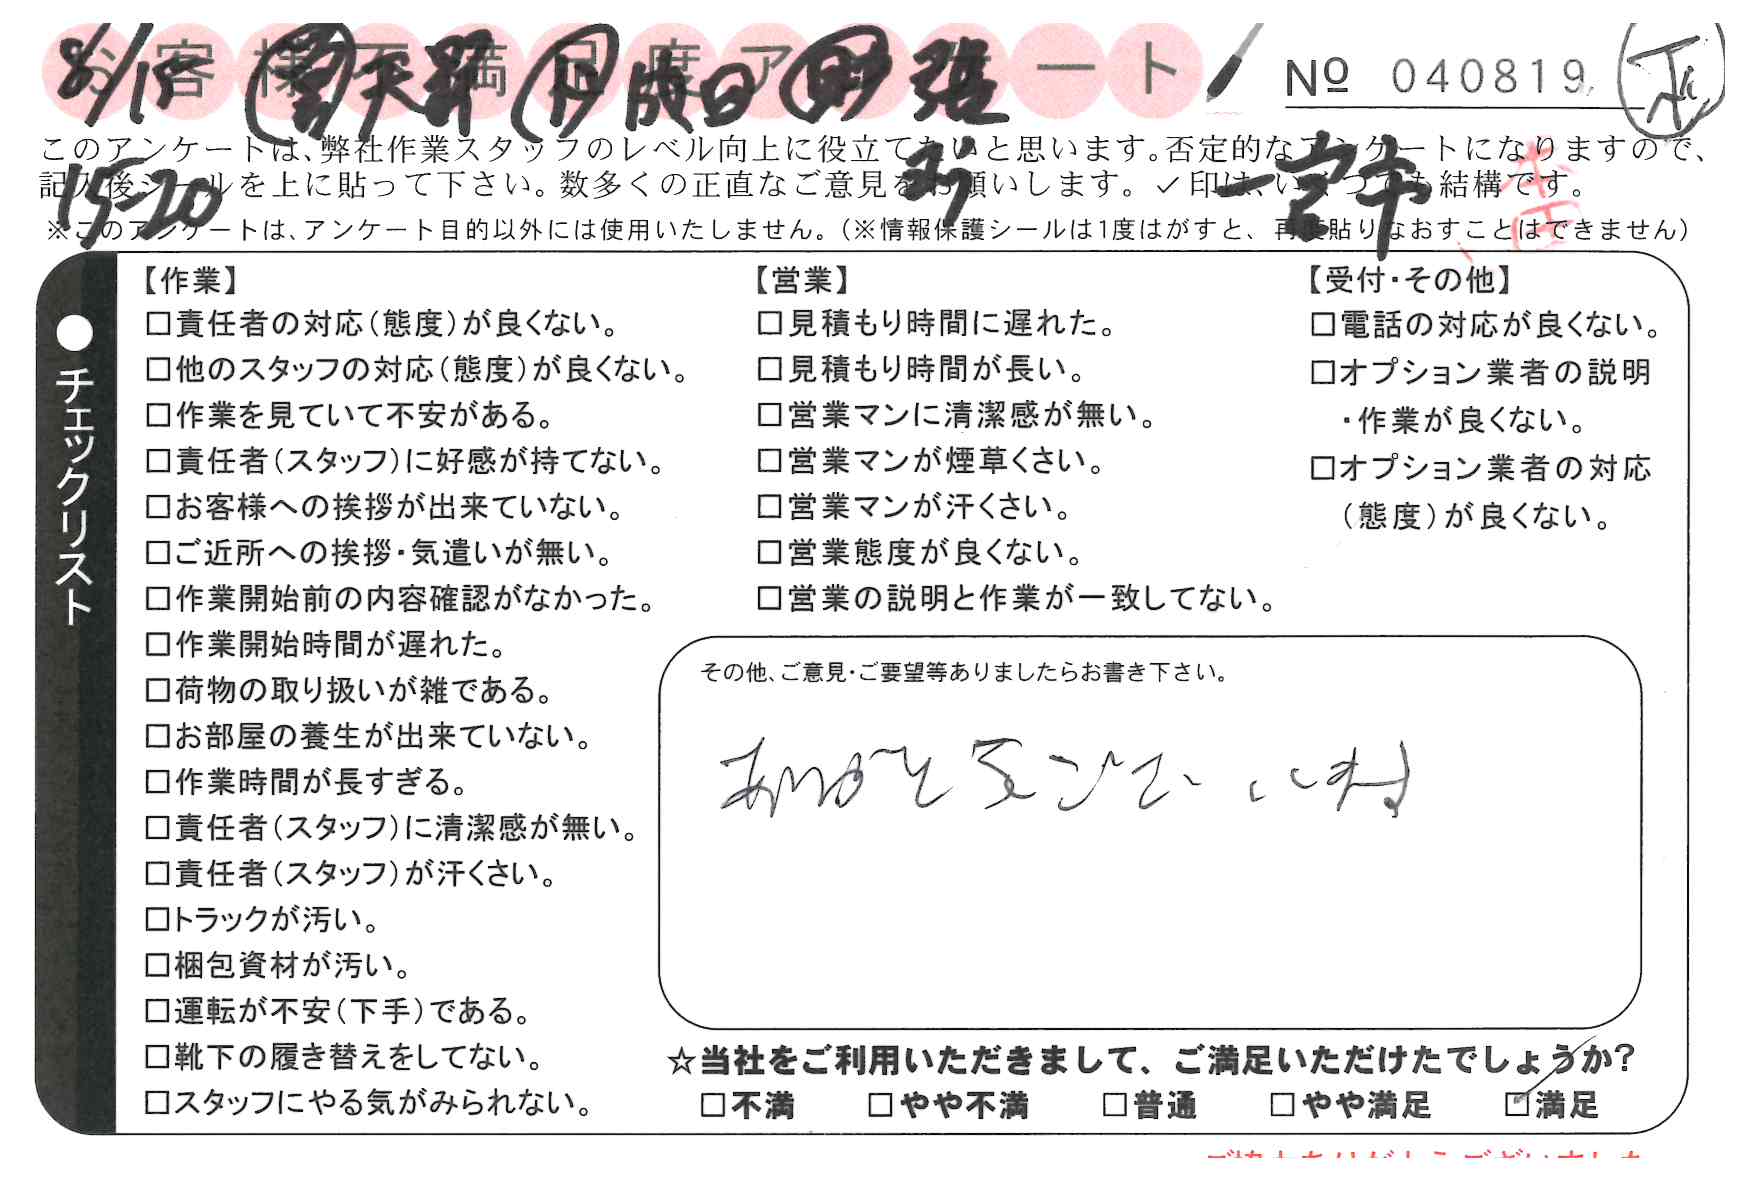 お客様不満足度アンケート
8/15
No 040819
このアンケートは、弊社作業スタッフのレベル向上に役立てたいと思います。否定的なアンケートになりますので、
記入後シールを上に貼って下さい。数多くの正直なご意見をお願いします。✓印は、いくつでも結構です。
15-20
※このアンケートは、アンケート目的以外には使用いたしません。(※情報保護シールは1度はがすと、再度貼りなおすことはできません)
●チェックリスト
【作業】
□責任者の対応(態度)が良くない。
□他のスタッフの対応(態度)が良くない。
□作業を見ていて不安がある。
□責任者(スタッフ)に好感が持てない。
□お客様への挨拶が出来ていない。
□ご近所への挨拶・気遣いが無い。
□作業開始前の内容確認がなかった。
□作業開始時間が遅れた。
□荷物の取り扱いが雑である。
□お部屋の養生が出来ていない。
□作業時間が長すぎる。
□責任者(スタッフ)に清潔感が無い。
□責任者(スタッフ)が汗くさい。
□トラックが汚い。
□梱包資材が汚い。
□運転が不安(下手)である。
□靴下の履き替えをしてない。
□スタッフにやる気がみられない。
【営業】
□見積もり時間に遅れた。
□見積もり時間が長い。
□営業マンに清潔感が無い。
□営業マンが煙草くさい。
□営業マンが汗くさい。
□営業態度が良くない。
□営業の説明と作業が一致してない。
【受付・その他】
□電話の対応が良くない。
□オプション業者の説明
・作業が良くない。
□オプション業者の対応
(態度)が良くない。
その他、ご意見・ご要望等ありましたらお書き下さい。
ありがとうございます
☆当社をご利用いただきまして、ご満足いただけたでしょうか?
□不満 □やや不満 □普通 □やや満足 ☑満足
ご協力ありがとうございました